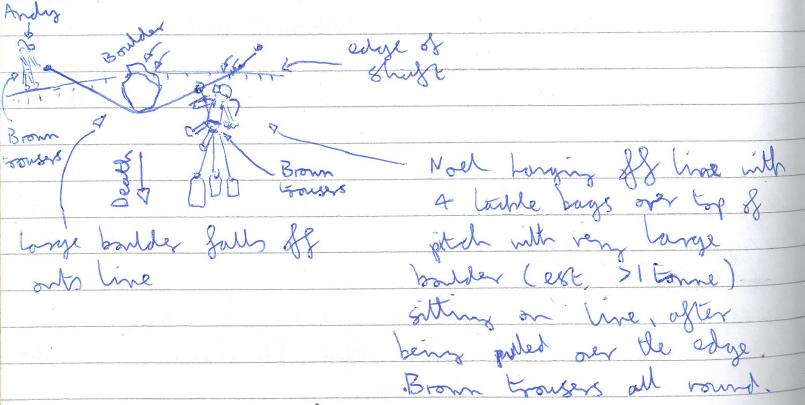 Andy
Boulder
edge of
shaft
Brown
trousers
Death
Brown
trousers
Large boulder falls off
onto line
Noel hanging off line with
4 tackle bags over top of
pitch with very large
boulder (est. >1 tonne)
sitting on line, after
being pulled over the edge.
Brown trousers all round.